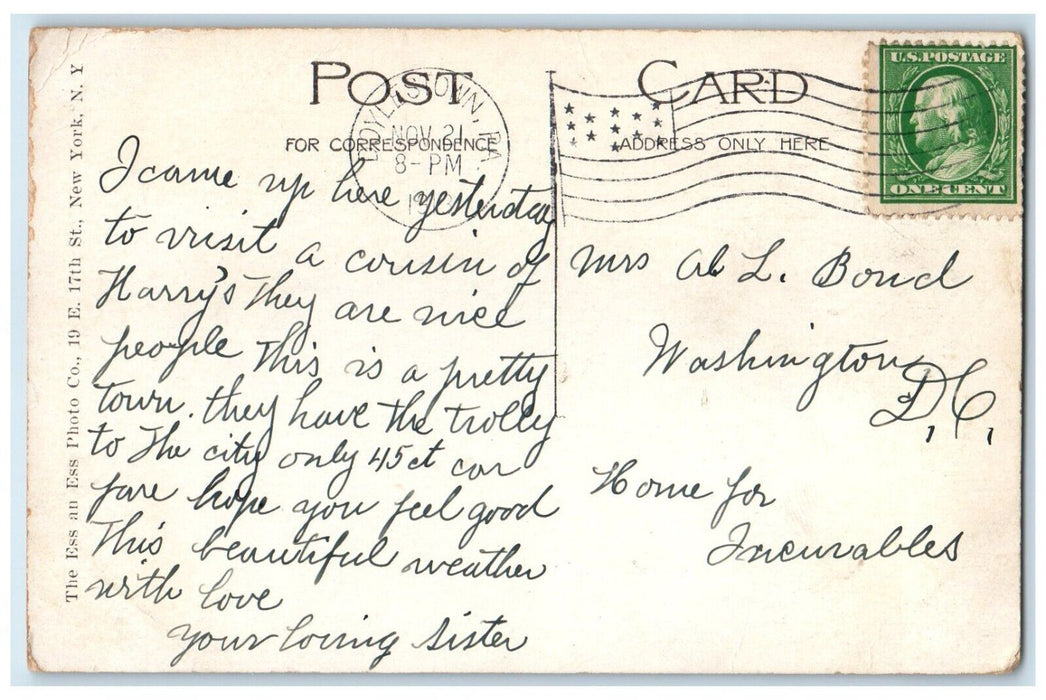 POST CARD
FOR CORRESPONDENCE
ADDRESS ONLY HERE
DOYLESTOWN, PA.
NOV 21
8 - PM
U.S. POSTAGE
ONE CENT
The Ess an Ess Photo Co., 19 E. 17th St., New York, N. Y
I came up here yesterday
to visit a cousin of
Harry's They are nice
people This is a pretty
town. they have the trolly
to the city only 45ct car
fare hope you feel good
This beautiful weather
with love
your loving sister
Mrs Al L. Bond
Washington
D, C,
Home for
Incurables